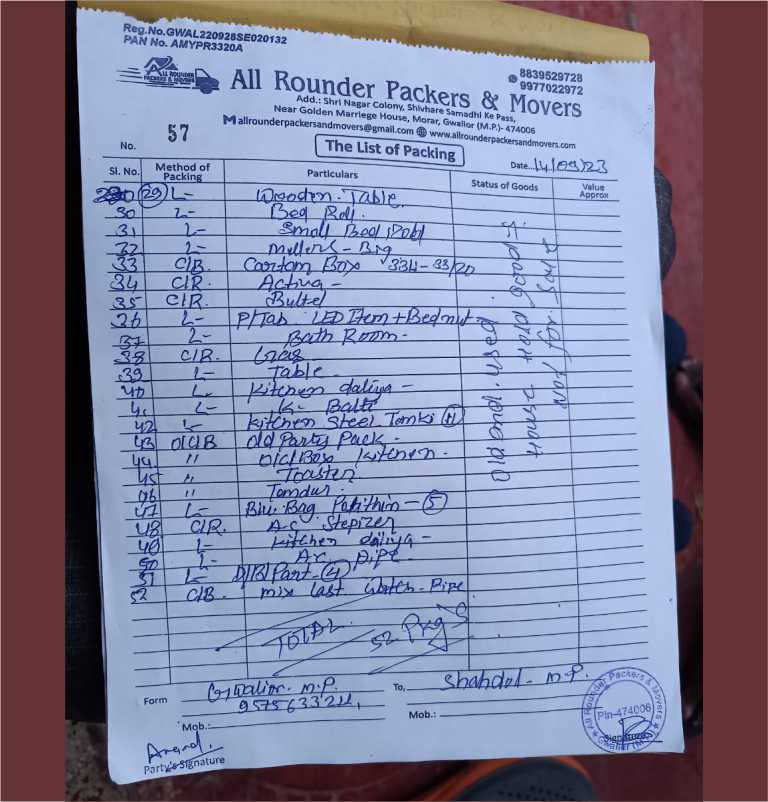 Reg.No.GWAL220928SE020132
PAN No. AMYPR3320A
8839529728
9977022972
ALL ROUNDER
PACKERS & MOVERS
All Rounder Packers & Movers
Add.: Shri Nagar Colony, Shivhare Samadhi Ke Pass,
Near Golden Marriege House, Morar, Gwalior (M.P.)- 474006
allrounderpackersandmovers@gmail.com www.allrounderpackersandmovers.com
No. 57
The List of Packing
Date 14/09/23
Sl. No. Method of Packing Particulars Status of Goods Value Approx
29 L- Wooden Table
30 L- Bed Roll.
31 L- Small Bed
32 L- - Big
33 C/B. Cartom Box
34 C/R. Activa -
35 C/R. Bultel
36 L- P/Tab. LED Item + Bed
37 L- Bath Room -
38 C/R.
39 L- Table
40 L. Kitchen daliya -
41 L- K- Balti
42 L- Kitchen Steel Tomki
43 O/C/B old Party Pack -
44. " old Box Kitchen.
45 " Toaster
46 " Tomdur.
47 L- Bag - 5
48 C/R. A.C Stepizer
49 L- Kitchen daliya -
50 L- A.C. pipe.
51 L- Part - 4
52 C/B. mix last Pipe
old and used
House Hold goods
not for Sale
TOTAL 52 Pkg's
Form Gwalior. M.P. To, Shahdol - M.P.
Mob.: Mob.:
Anand.
Party's Signature
All Rounder Packers & Movers
Pin-474006
Gwalior (M.P.)
Signature